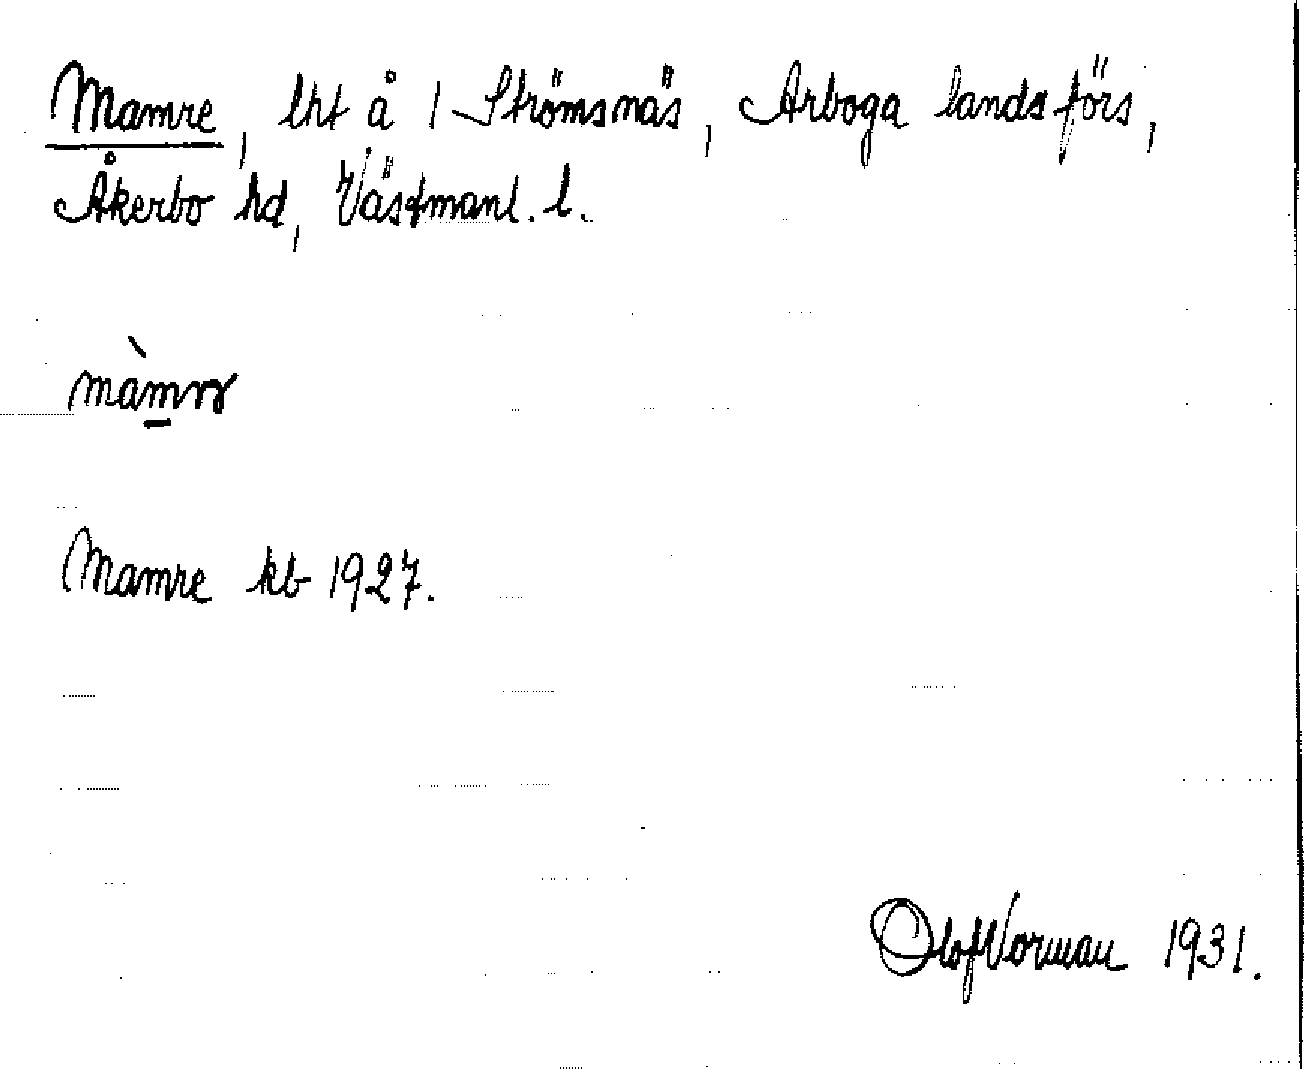 Mamre, lht å 1 Strömsnäs, Arboga landsförs,
Åkerbo hd, Västmanl. l.
màmrɐ
Mamre kb 1927.
Olof Vorman 1931.